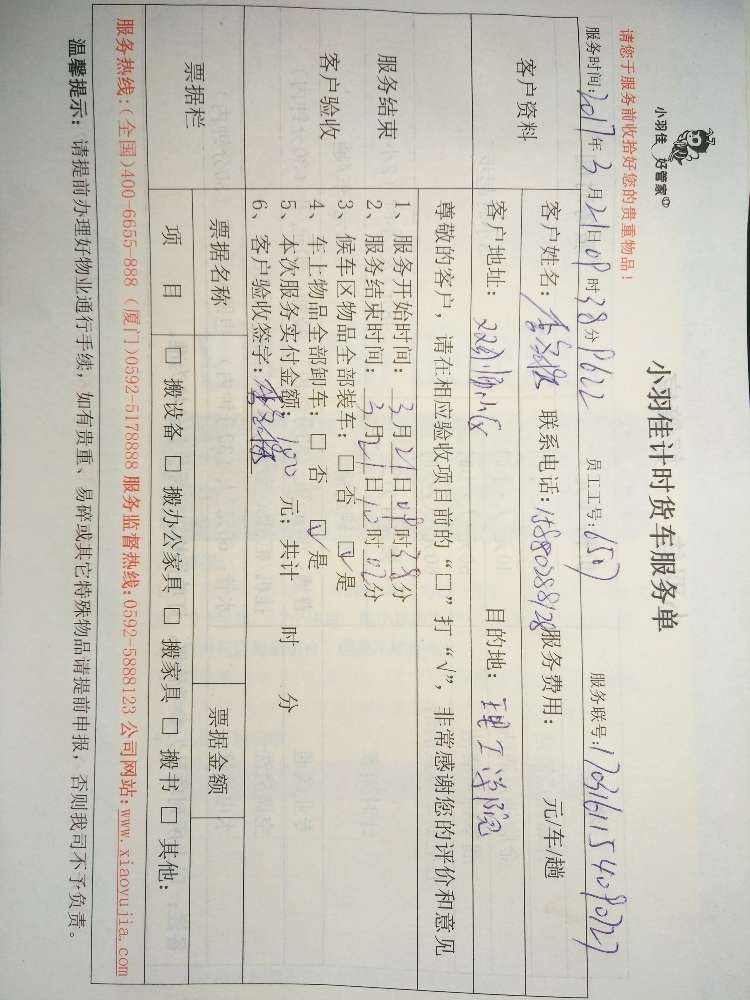 小羽佳 好管家
小羽佳计时货车服务单
请您于服务前收拾好您的贵重物品！
服务时间：2017年3月21日09时38分 员工工号：6507 服务联号：
客户资料
客户姓名： 联系电话：15880288128 服务费用： 元/车/趟
客户地址： 小区 目的地：理工学院
服务结束
客户验收
尊敬的客户，请在相应验收项目前的“□”打“√”，非常感谢您的评价和意见
1、服务开始时间：3月21日09时38分
2、服务结束时间：3月21日10时02分
3、候车区物品全部装车：□ 否 ☑ 是
4、车上物品全部卸车：□ 否 ☑ 是
5、本次服务实付金额：180元；共计 时 分
6、客户验收签字：
票据栏
票据名称 票据金额
项 目 □ 搬设备 □ 搬办公家具 □ 搬家具 □ 搬书 □ 其他：
服务热线：(全国)400-6655-888 (厦门)0592-5178888 服务监督热线：0592-5888123 公司网站：www.xiaoyujia.com
温馨提示：请提前办理好物业通行手续，如有贵重、易碎或其它特殊物品请提前申报，否则我司不予负责。